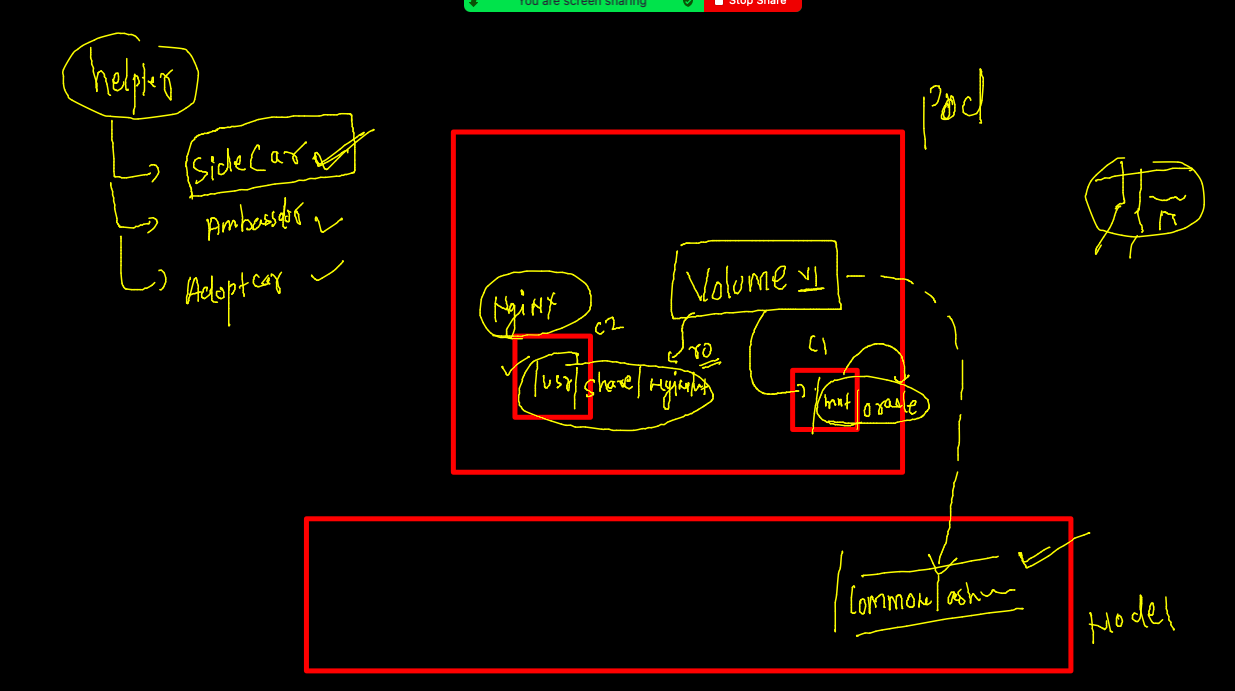 You are screen sharing Stop Share
helpter
Pod
SideCar
Ambassdor
Adoptcar
Volume v1
NgiNX
C2
ro
C1
/usr/share/nginx/
/mnt/oracle
/common/ashu
Node1